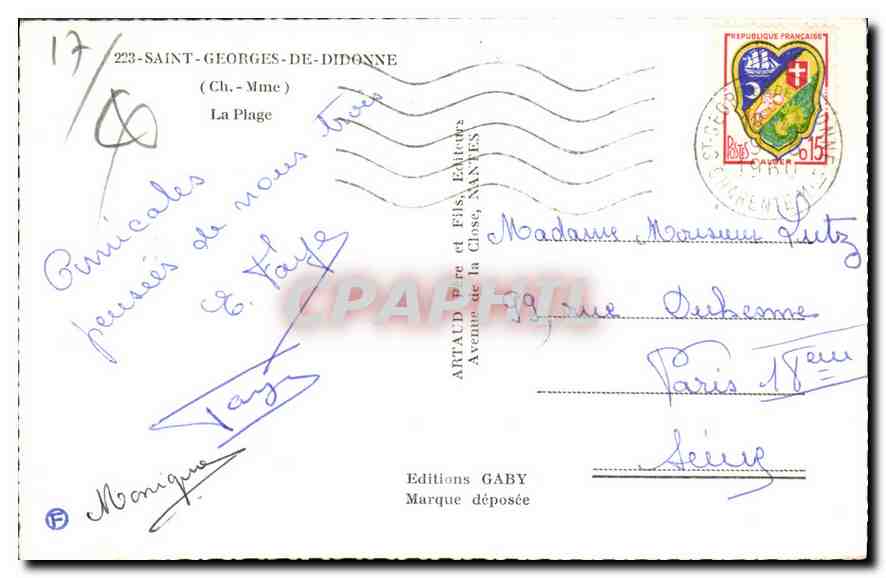 17/
223-SAINT-GEORGES-DE-DIDONNE
(Ch.-Mme)
La Plage
Amicales
pensées de nous trois
E. Faye
Faye
Monique
F
ARTAUD Père et Fils, Editeurs
Avenue de la Close, NANTES
REPUBLIQUE FRANÇAISE
POSTES
0,15
ALGER
1960
CHARENTE Mme
Madame Monsieur Lutz
99, rue
Paris 18eme
Seine
Editions GABY
Marque déposée
CPAPHIL